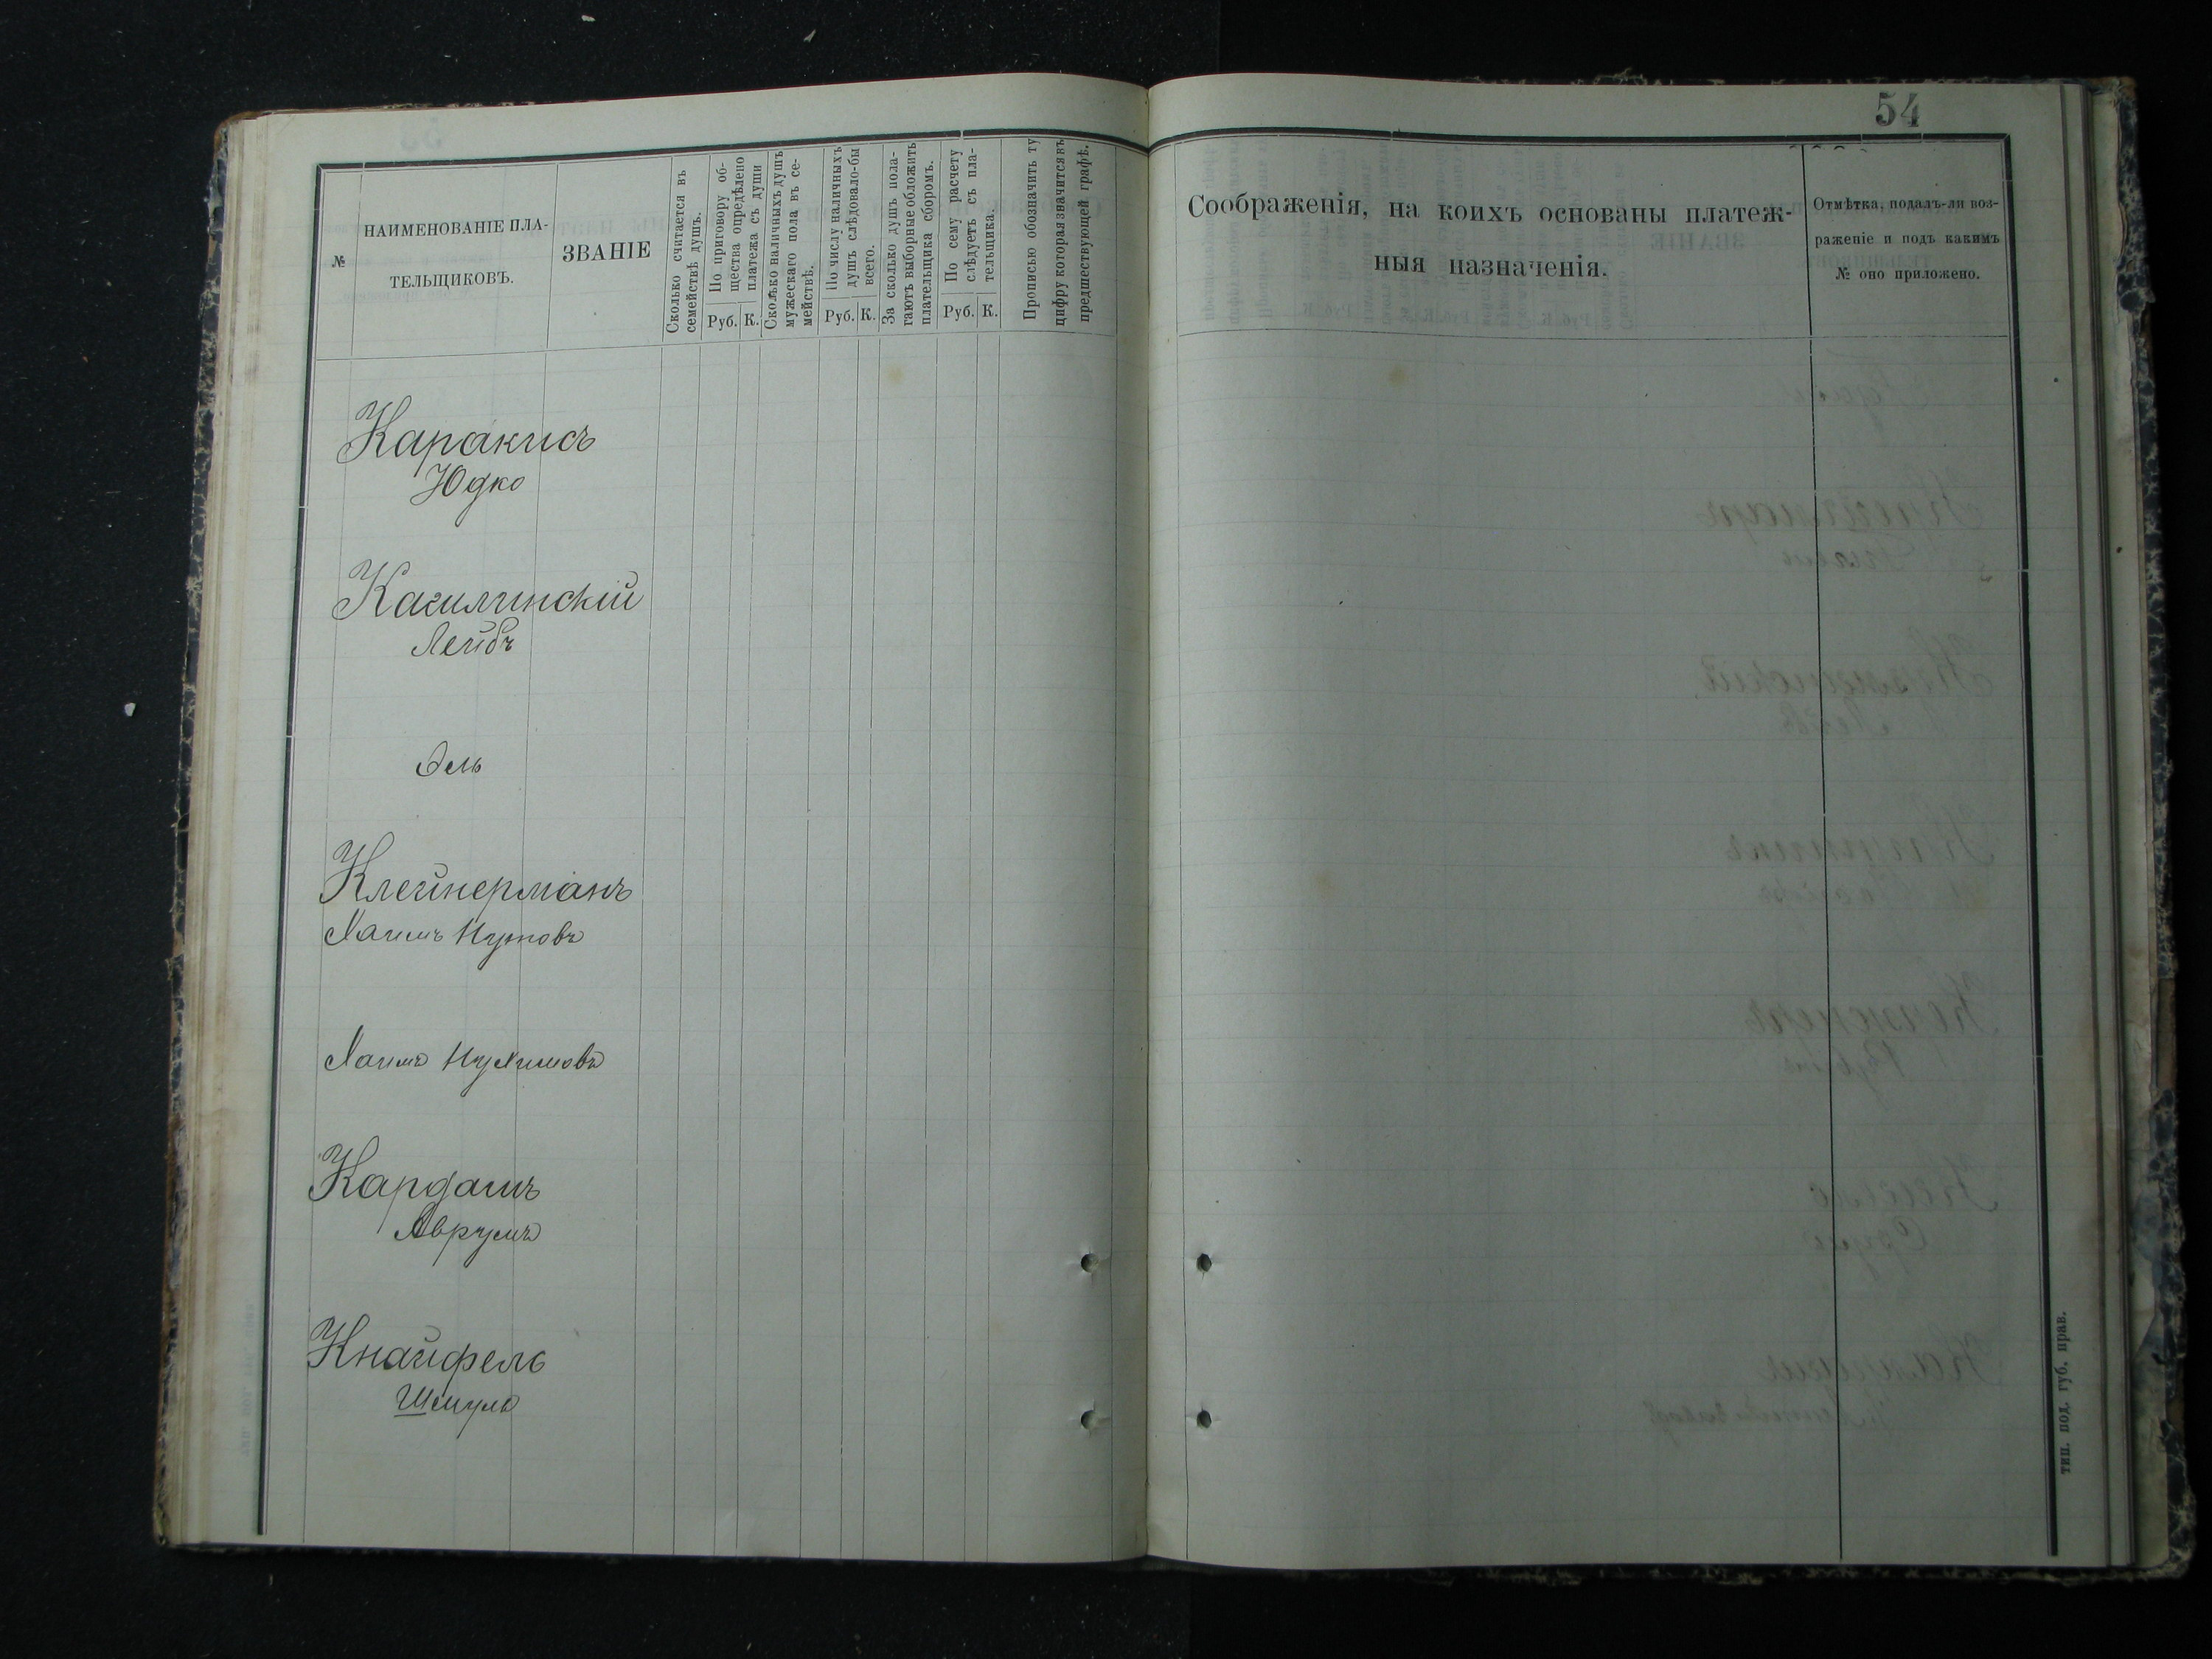 54
№
НАИМЕНОВАНІЕ ПЛА-
ТЕЛЬЩИКОВЪ.
ЗВАНІЕ
Сколько считается въ
семействѣ душъ.
По приговору об-
щества опредѣлено
платежа съ души
Руб. К.
Сколько наличныхъ душъ
мужескаго пола въ се-
мействѣ.
По числу наличныхъ
душъ слѣдовало-бы
всего.
Руб. К.
За сколько душъ пола-
гаютъ выборные обложить
плательщика сборомъ.
По сему расчету
слѣдуетъ съ пла-
тельщика.
Руб. К.
Прописью обозначить ту
цифру которая значится въ
предшествующей графѣ.
Соображенія, на коихъ основаны платеж-
ныя назначенія.
Отмѣтка, подалъ-ли воз-
раженіе и подъ какимъ
№ оно приложено.
Каракисъ
Юдко
Кагилинскій
Лейбъ
Эль
Клейнерманъ
Хаимъ
Хаимъ Нухимовъ
Кардашъ
Аврумъ
Кнайфель
Шмуль
тип. под. губ. прав.